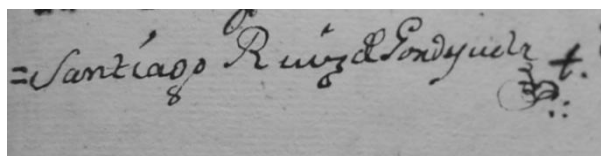 =Santiago Ruiz de Gondyuela t.